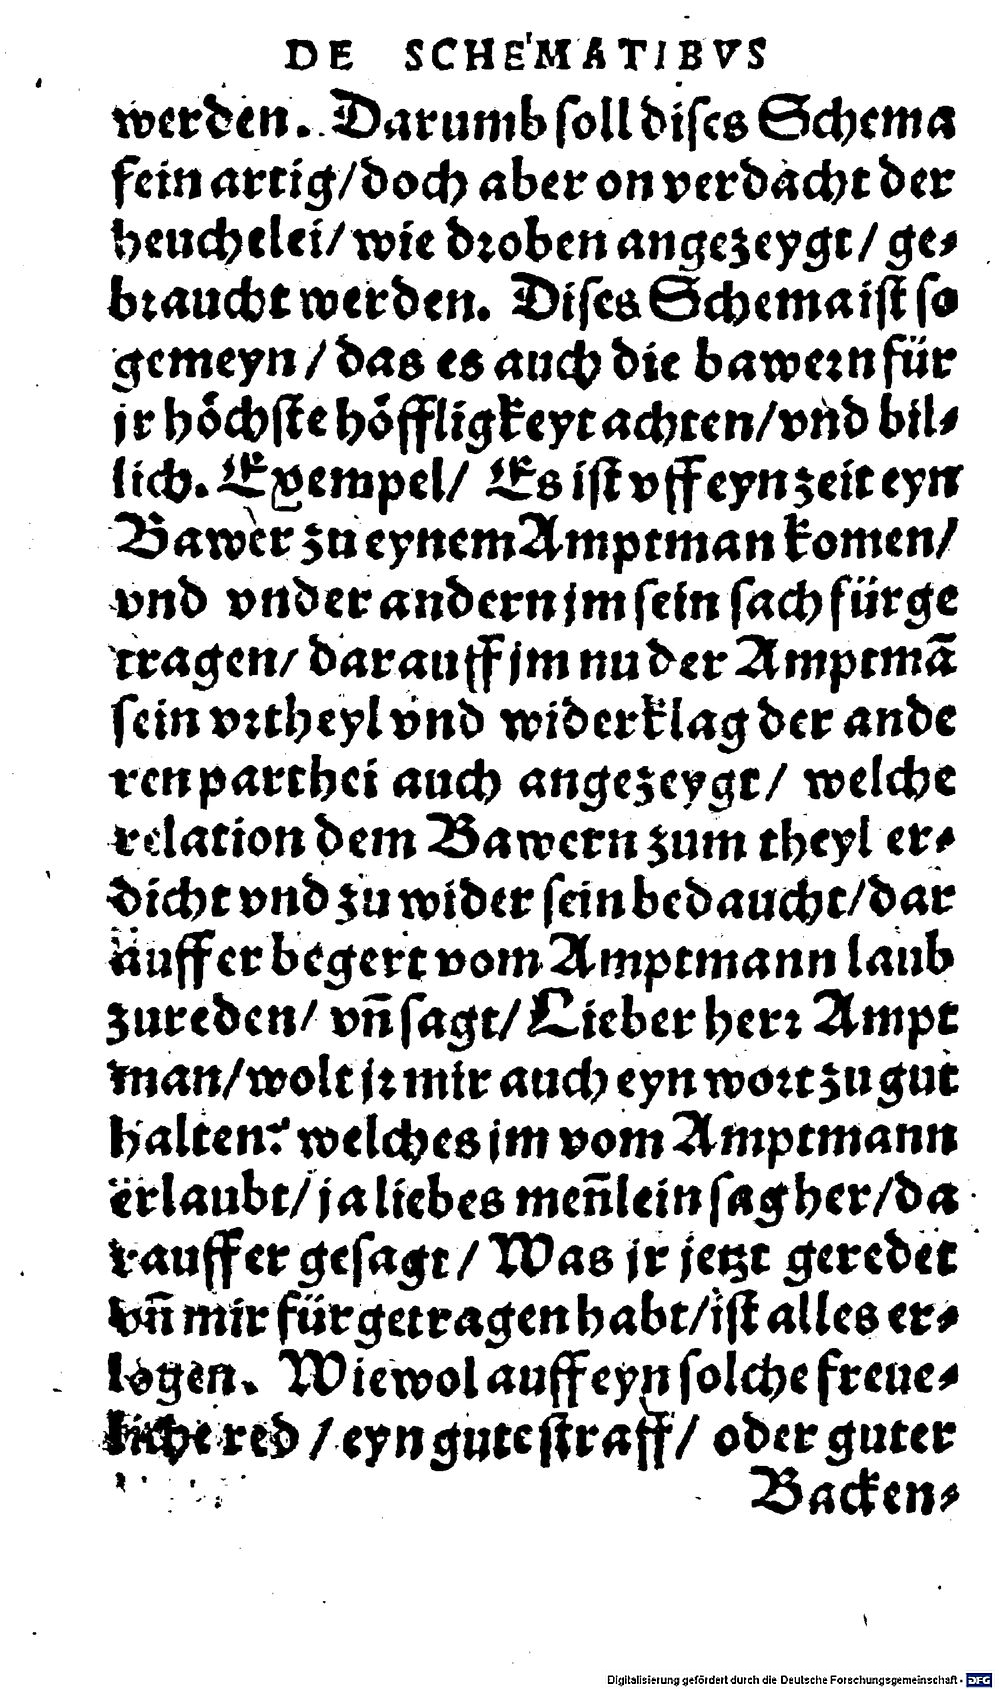 DE SCHEMATIBVS
werden. Darumb soll dises Schema
fein artig/ doch aber on verdacht der
heuchelei/ wie droben angezeygt/ ge-
braucht werden. Dises Schema ist so
gemeyn/ das es auch die bawern für
jr höchste höffligkeyt achten/ vnd bil-
lich. Exempel/ Es ist vff eyn zeit eyn
Bawer zu eynem Amptman komen/
vnd vnder andern jm sein sach fürge
tragen/ darauff jm nu der Amptmã
sein vrtheyl vnd widerklag der ande
ren parthei auch angezeygt/ welche
relation dem Bawern zum theyl er-
dicht vnd zu wider sein bedaucht/ dar
auff er begert vom Amptmann laub
zu reden/ vñ sagt/ Lieber herr Ampt
man/ wolt jr mir auch eyn wort zu gut
halten? welches jm vom Amptmann
erlaubt/ ja liebes meñlein sag her/ da
rauff er gesagt/ Was jr jetzt geredet
vñ mir fürgetragen habt/ ist alles er-
logen. Wiewol auff eyn solche freue-
liche red/ eyn gute straff/ oder guter
Backen-
Digitalisierung gefördert durch die Deutsche Forschungsgemeinschaft - DFG